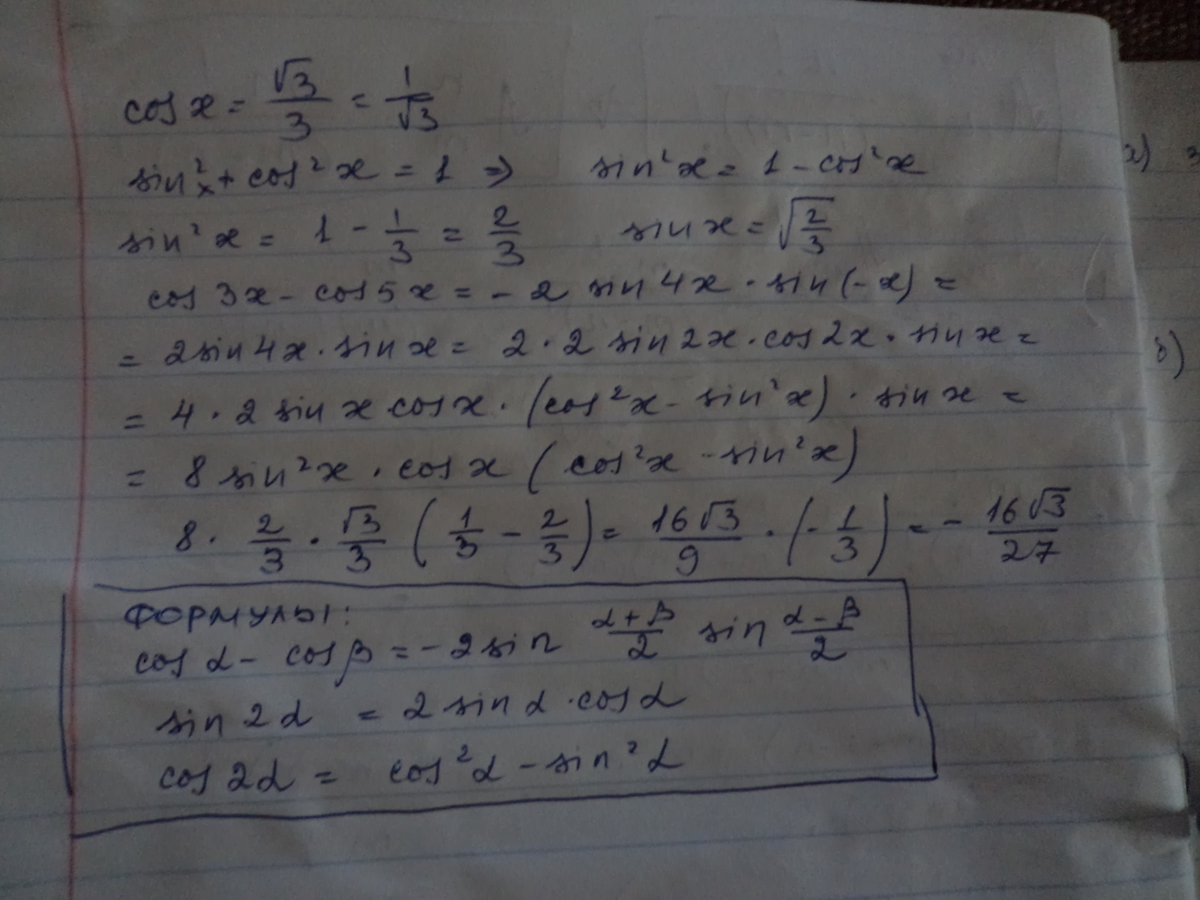 cos x = √3/3 = 1/√3
sin²x + cos²x = 1 ⇒ sin²x = 1 - cos²x
sin²x = 1 - 1/3 = 2/3 sin x = √(2/3)
cos 3x - cos 5x = - 2 sin 4x · sin(-x) =
= 2 sin 4x · sin x = 2 · 2 sin 2x · cos 2x · sin x =
= 4 · 2 sin x cos x · (cos²x - sin²x) · sin x =
= 8 sin²x · cos x (cos²x - sin²x)
8 · 2/3 · √3/3 (1/3 - 2/3) = 16√3/9 · (-1/3) = - 16√3/27
ФОРМУЛЫ:
cos α - cos β = - 2 sin (α+β)/2 sin (α-β)/2
sin 2α = 2 sin α · cos α
cos 2α = cos²α - sin²α
а)
б)